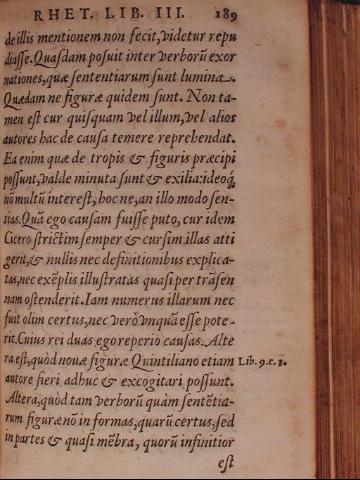 RHET. LIB. III. 189
de illis mentionem non fecit, videtur repu
diasse. Quasdam posuit inter verborū exor
nationes, quæ sententiarum sunt lumina.
Quædam ne figuræ quidem sunt. Non ta-
men est cur quisquam vel illum, vel alios
autores hac de causa temere reprehendat.
Ea enim quæ de tropis & figuris præcipi
possunt, valde minuta sunt & exilia: ideoq́;
nō multū interest, hoc ne, an illo modo sen-
tias. Quā ego causam fuisse puto, cur idem
Cicero strictim semper & cursim illas atti
gerit, & nullis nec definitionibus explica-
tas, nec exēplis illustratas quasi per trāsen
nam ostenderit. Iam numerus illarum nec
fuit olim certus, nec verò vnquā esse pote-
rit. Cuius rei duas ego reperio causas. Alte
ra est, quòd nouæ figuræ Quintiliano etiam Lib. 9. c. 3.
autore fieri adhuc & excogitari possunt.
Altera, quòd tam verborū quàm sentētia-
rum figuræ nō in formas, quarū certus, sed
in partes & quasi mēbra, quorū infinitior
est